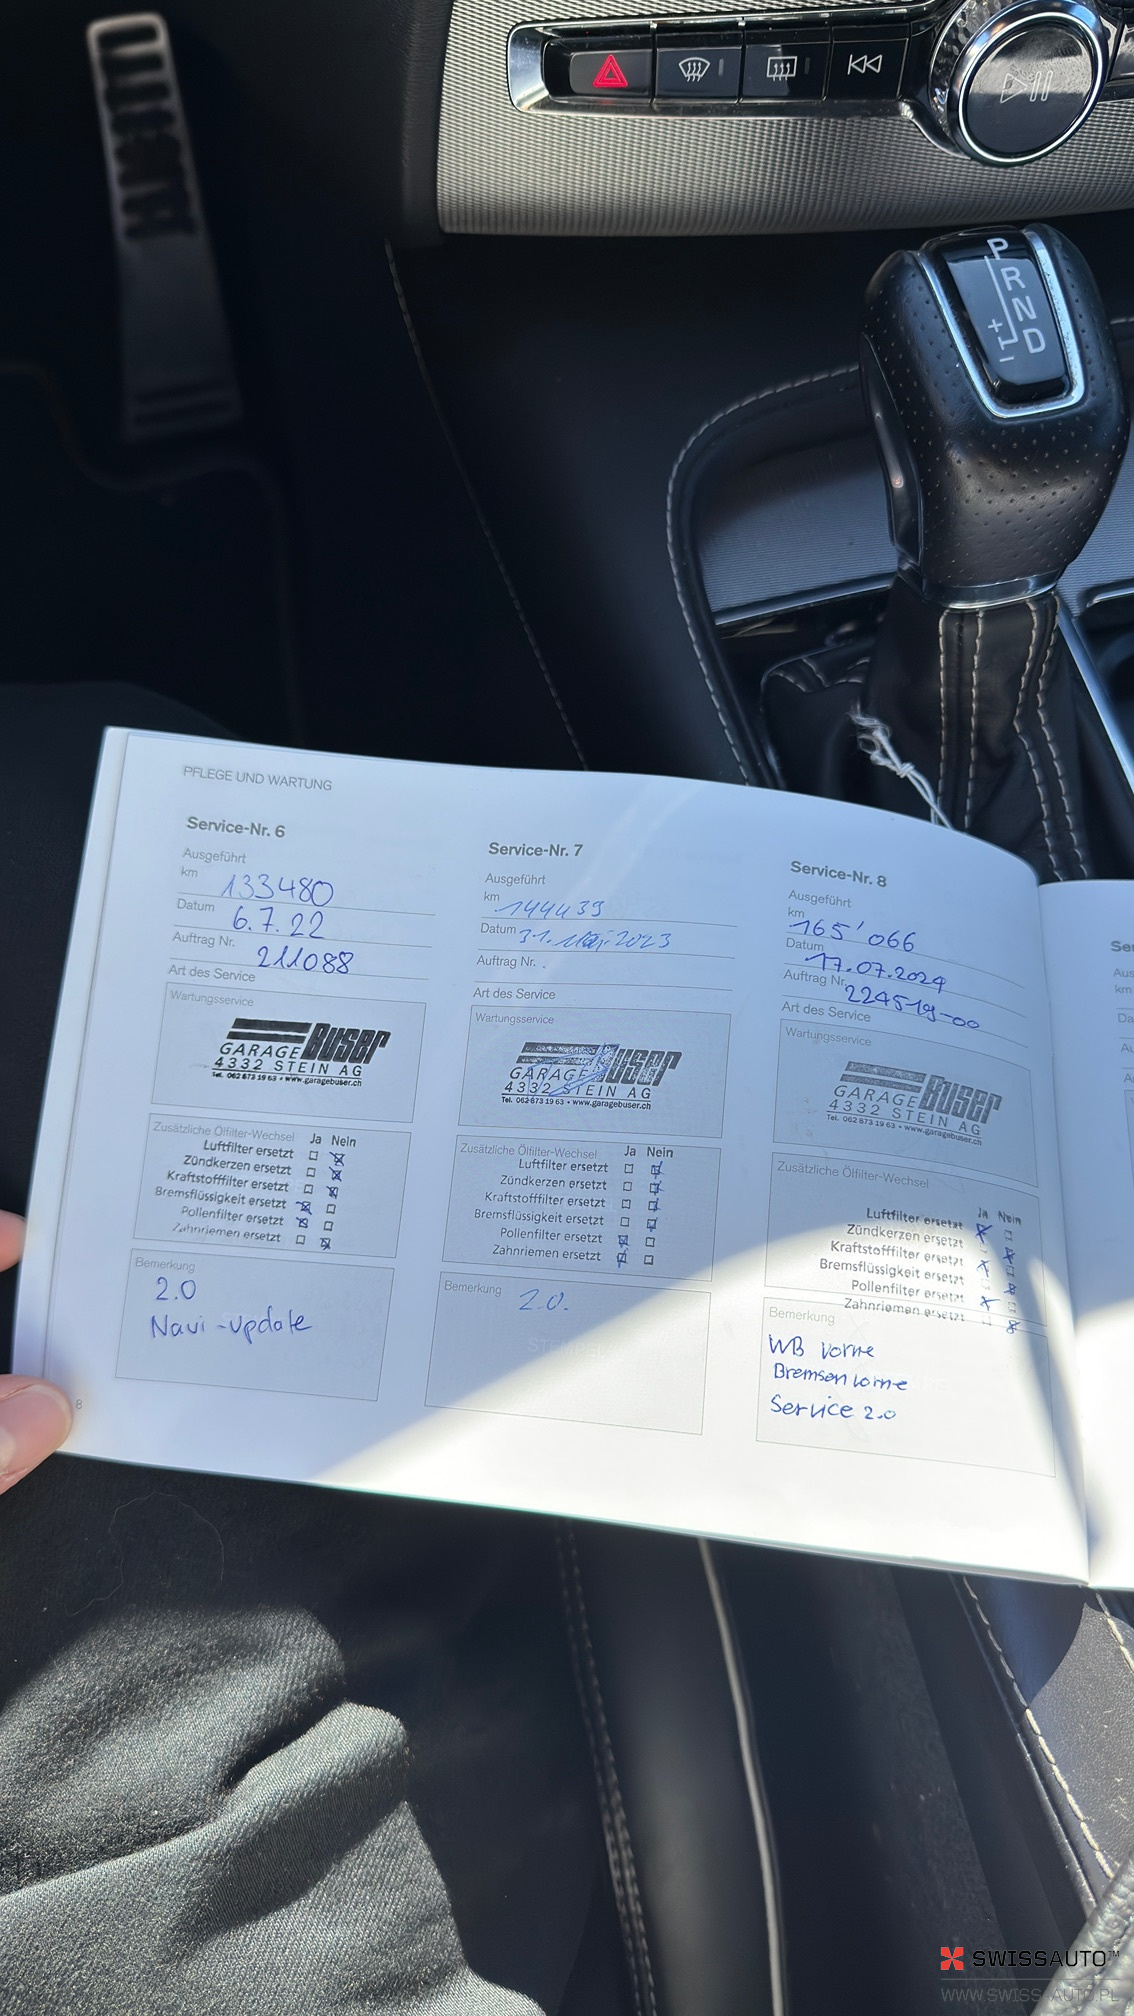 P
R
N
D
+
−
PFLEGE UND WARTUNG
Service-Nr. 6
Ausgeführt
km 133480
Datum 6.7.22
Auftrag Nr. 211088
Art des Service
Wartungsservice
BUSER
GARAGE
4332 STEIN AG
Tel. 062 873 19 63 • www.garagebuser.ch
Zusätzliche Ölfilter-Wechsel Ja Nein
Luftfilter ersetzt
Zündkerzen ersetzt
Kraftstofffilter ersetzt
Bremsflüssigkeit ersetzt
Pollenfilter ersetzt
Zahnriemen ersetzt
Bemerkung
2.0
Navi-update
8
Service-Nr. 7
Ausgeführt
km 144439
Datum 31. Mai 2023
Auftrag Nr.
Art des Service
Wartungsservice
BUSER
GARAGE
4332 STEIN AG
Tel. 062 873 19 63 • www.garagebuser.ch
Zusätzliche Ölfilter-Wechsel Ja Nein
Luftfilter ersetzt
Zündkerzen ersetzt
Kraftstofffilter ersetzt
Bremsflüssigkeit ersetzt
Pollenfilter ersetzt
Zahnriemen ersetzt
Bemerkung
2.0.
STEMPEL
Service-Nr. 8
Ausgeführt
km 165'066
Datum 17.07.2024
Auftrag Nr. 224519-00
Art des Service
Wartungsservice
BUSER
GARAGE
4332 STEIN AG
Tel. 062 873 19 63 • www.garagebuser.ch
Zusätzliche Ölfilter-Wechsel
Ja Nein
Luftfilter ersetzt
Zündkerzen ersetzt
Kraftstofffilter ersetzt
Bremsflüssigkeit ersetzt
Pollenfilter ersetzt
Zahnriemen ersetzt
Bemerkung
WB vorne
Bremsen vorne
Service 2.0
SWISSAUTO™
WWW.SWISSAUTO.PL